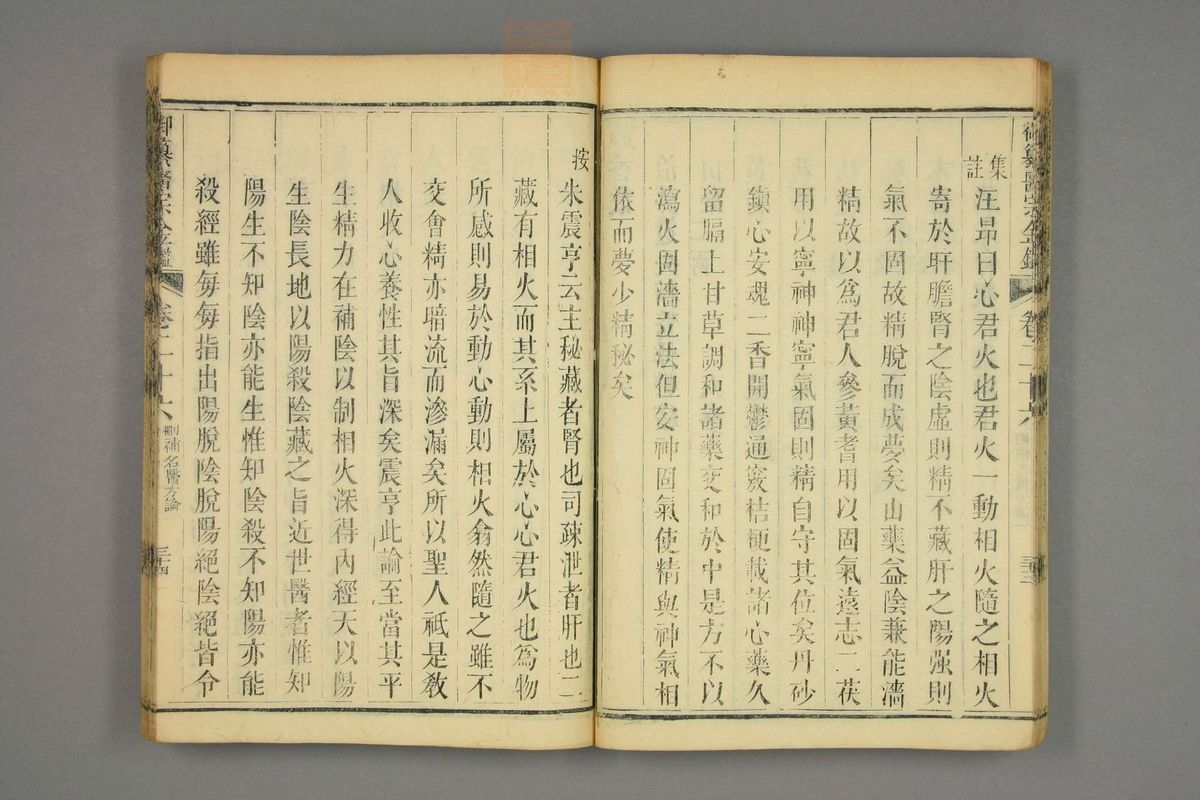 御纂醫宗金鑑 卷二十六 三十三
集註
汪昂曰心君火也君火一動相火隨之相火
寄於肝膽腎之陰虛則精不藏肝之陽强則
氣不固故精脫而成夢矣山藥益陰兼能濇
精故以爲君人參黃耆用以固氣遠志二茯
用以寧神神寧氣固則精自守其位矣丹砂
鎮心安魂二香開鬱通竅桔梗載諸心藥久
留膈上甘草調和諸藥交和於中是方不以
瀉火固濇立法但安神固氣使精與神氣相
依而夢少精秘矣
按
朱震亨云主秘藏者腎也司疎泄者肝也二
藏有相火而其系上屬於心心君火也爲物
所感則易於動心動則相火翕然隨之雖不
交會精亦暗流而滲漏矣所以聖人祗是敎
人收心養性其旨深矣震亨此論至當其平
生精力在補陰以制相火深得內經天以陽
生陰長地以陽殺陰藏之旨近世醫者惟知
陽生不知陰亦能生惟知陰殺不知陽亦能
殺經雖每每指出陽脫陰脫陽絕陰絕皆令
御纂醫宗金鑑 卷二十六 刪補名醫方論 三十四